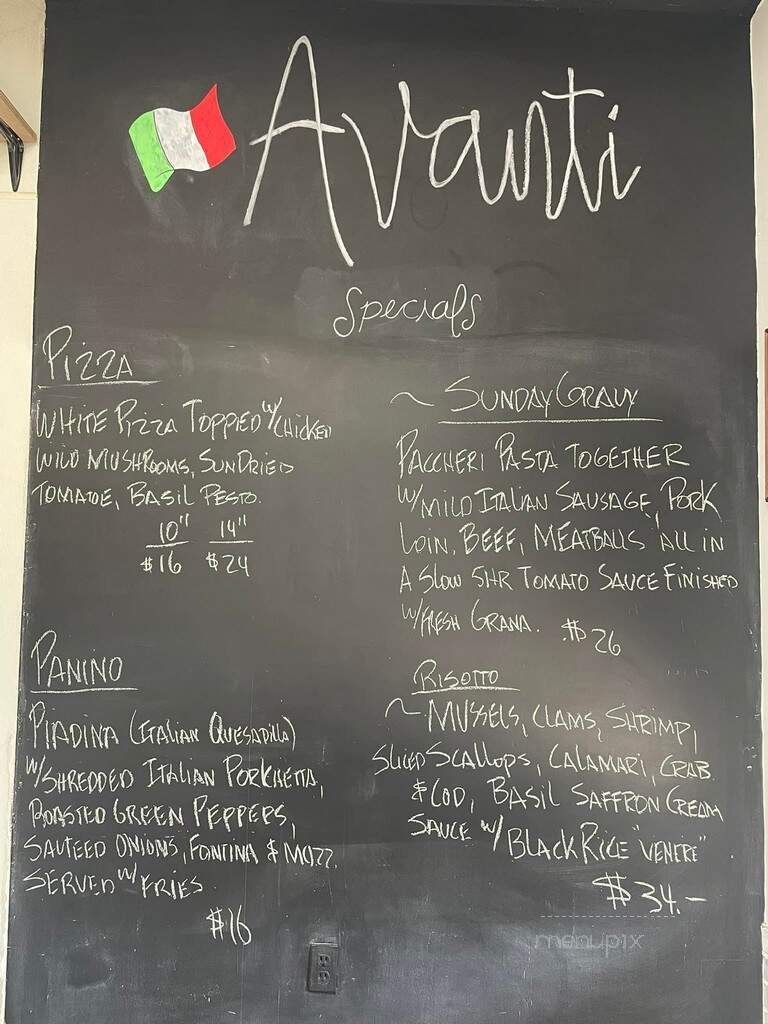 Avanti
Specials
Pizza
White Pizza Topped w/ Chicken
Wild Mushrooms, Sundried
Tomatoe, Basil Pesto.
10" 14"
$16 $24
Panino
Piadina (Italian Quesadilla)
w/ Shredded Italian Porkhetta,
Roasted Green Peppers,
Sauteed Onions, Fontina & Mozz.
Served w/ Fries
$16
~ Sunday Gravy
Paccheri Pasta Together
w/ Mild Italian Sausage, Pork
Loin, Beef, Meatballs All in
A Slow 5HR Tomato Sauce Finished
w/ Fresh Grana. $26
Risotto
~ Mussels, Clams, Shrimp,
Sliced Scallops, Calamari, Crab
& Cod, Basil Saffron Cream
Sauce w/ Black Rice "Venere"
$34.-
menupix